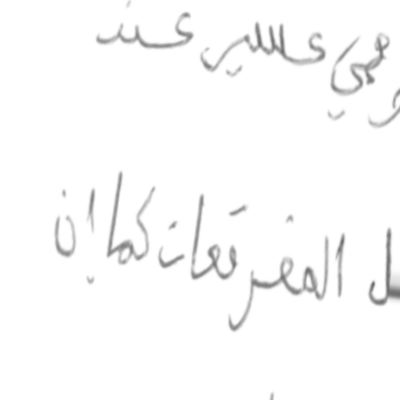 وهي عسير عند
المفرقعات كما إن